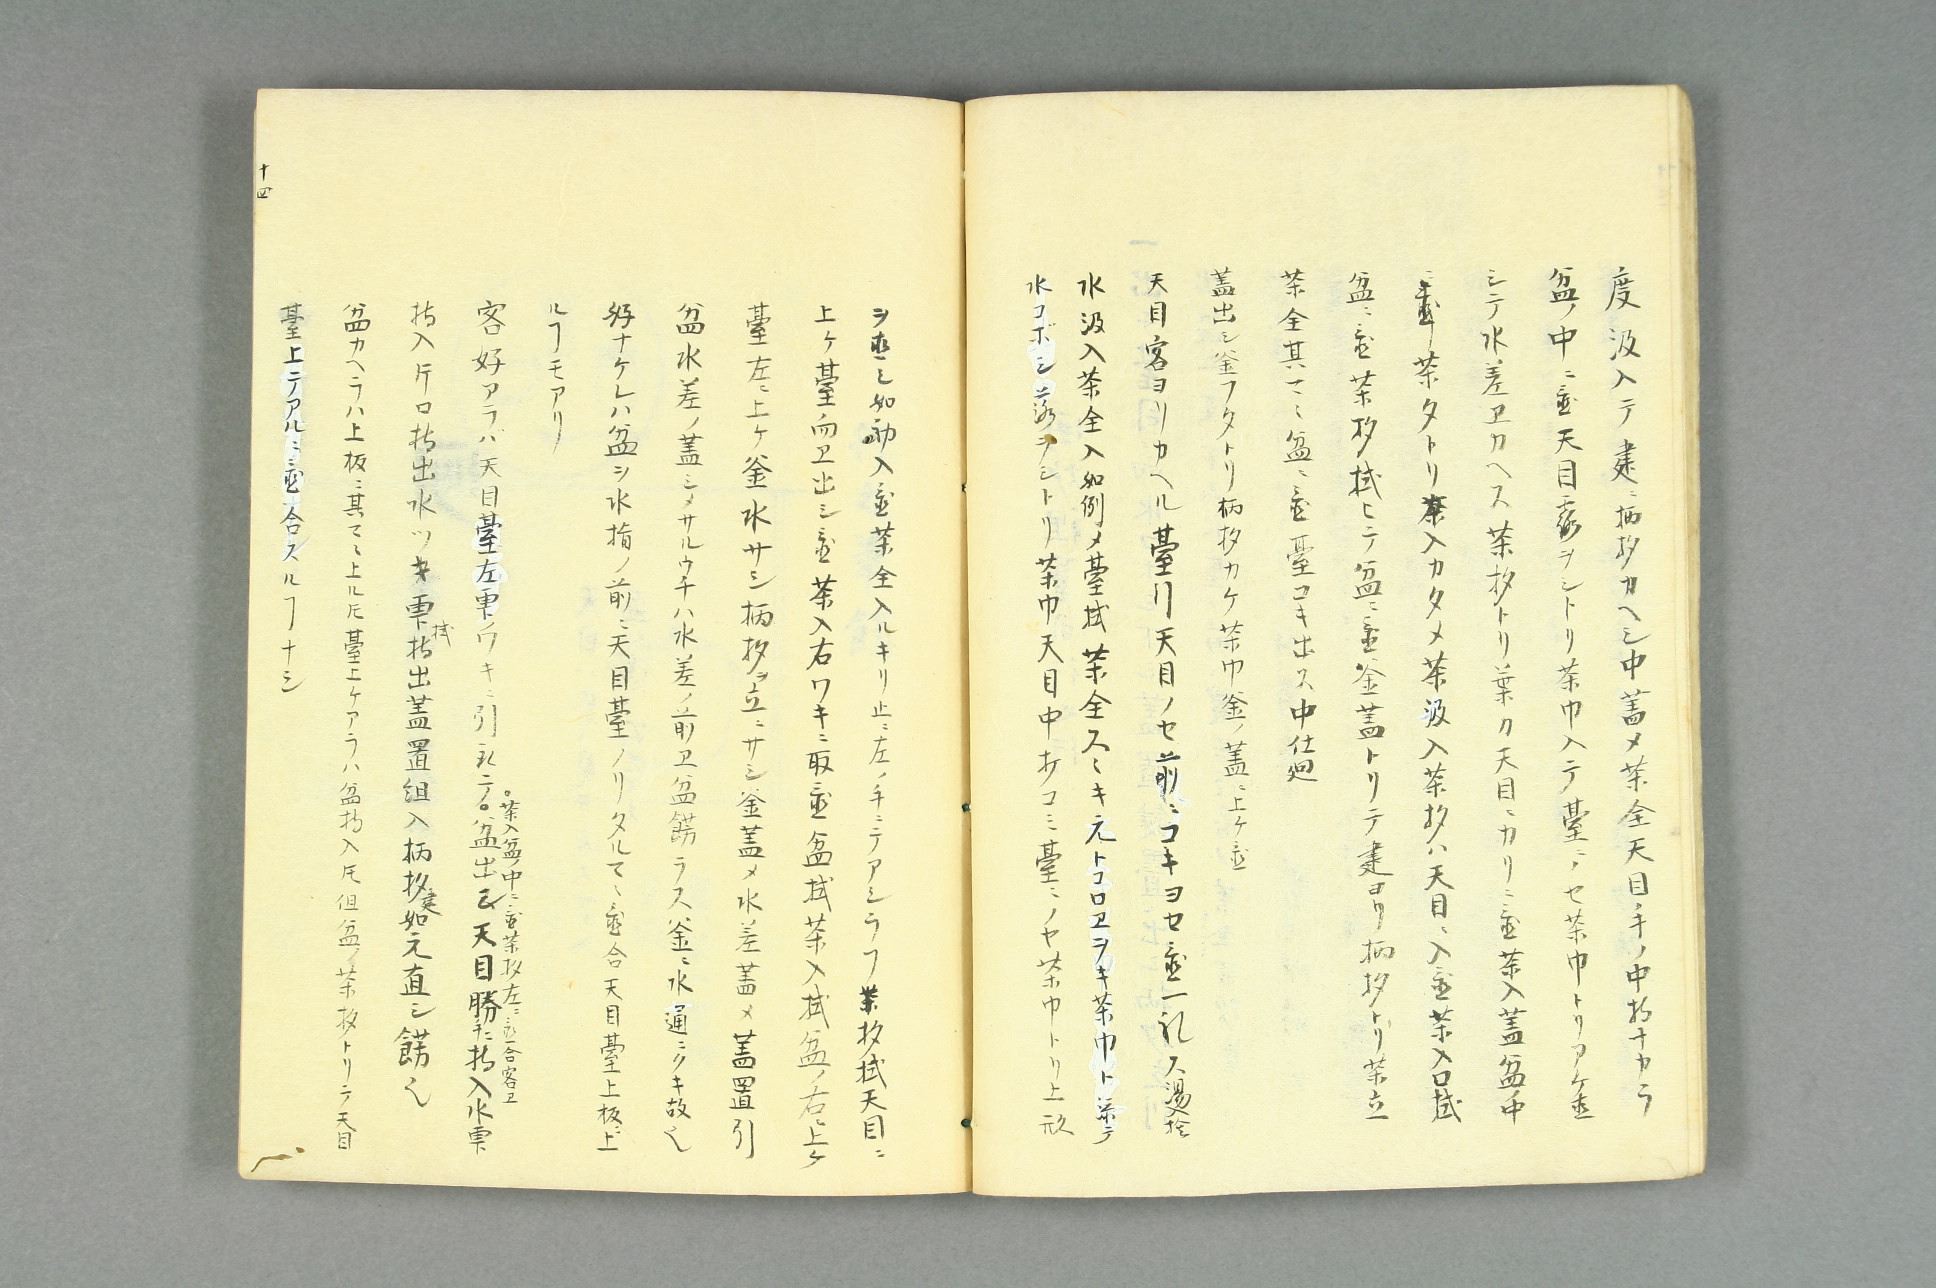 度汲入テ建ニ柄杓カヘシ中蓋〆茶全天目手ノ中持ナカラ
盆ノ中ニ置天目露ヲシトリ茶巾入テ臺ニノセ茶巾トリアケ置
シテ水差ヱカヘス茶杓トリ葉カ天目ニカリニ置茶入蓋盆中
ニ置茶タトリ茶入カタメ茶汲入茶杓ハ天目ニ入置茶入口拭
盆ニ置茶杓拭ヒテ盆ニ置釜蓋トリテ建ヨリ柄杓トリ茶立
茶全其マヽ盆ニ置臺コキ出ス中仕廻
蓋出シ釜フタトリ柄杓カケ茶巾釜ノ蓋ニ上ケ置
天目客ヨリカヘル臺引天目ノセ前ニコキヨセ置一礼ス湯捨
水汲入茶全入如例〆臺拭茶全スヽキ元トコロヱヲキ茶巾ト
水コボシ露ヲシトリ茶巾天目中オコミ臺ニノせ茶巾トリ上
ヲ 如 入置茶全入ルキリ止ニ左ノ手ニテアシラフ茶杓拭天目ニ
上ケ臺向ヱ出シ置茶入右ワキニ取置盆拭茶入拭盆ノ右ニ上ケ
臺左ニ上ケ釜水サシ柄杓ヲ立ニサシ釜蓋〆水差蓋〆蓋置引
盆水差ノ蓋シメサルウチハ水差ノ前ヱ盆餝ラス釜ニ水通ニクキ故也
好ナケレハ盆ヲ水指ノ前ニ天目臺ノリタルマヽ置合天目臺上板ニ上
ルヿモアリ
客好アラバ天目臺左雫ワキニ引 テ○盆出シ天目勝手ニ持入水雫
○茶入盆ノ中ニ置茶杓左ニ置合客ヱ
持入片口持出水ツキ雫拭持出蓋置組入柄杓建如元直シ餝也
盆カヘラハ上板ニ其マヽ上ル𪜈臺上ケアラハ盆持入𪜈但盆ノ茶杓トリテ天目
臺上ニアルニ置合スルヿナシ
十四